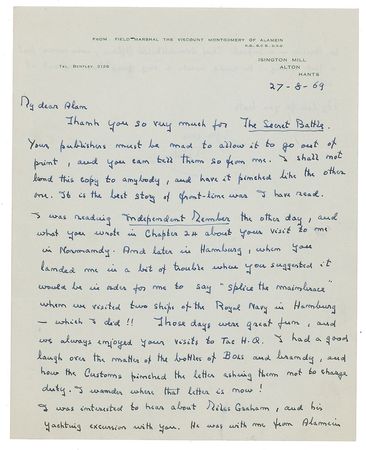 FROM FIELD-MARSHAL THE VISCOUNT MONTGOMERY OF ALAMEIN
K.G., G.C.B., D.S.O.
TEL. BENTLEY 3126
ISINGTON MILL
ALTON
HANTS
27-8-69
My dear Alan
Thank you so very much for The Secret Battle.
Your publishers must be mad to allow it to go out of
print, and you can tell them so from me. I shall not
lend this copy to anybody, and have it pinched like the other
one. It is the best story of front-line war I have read.
I was reading Independent Member the other day, and
what you wrote in Chapter 24 about your visit to me
in Normandy. And later in Hamburg, when you
landed me in a bit of trouble when you suggested it
would be in order for me to say "splice the mainbrace"
when we visited two ships of the Royal Navy in Hamburg
— which I did!! Those days were great fun, and
we always enjoyed your visits to Tac H.Q. I had a good
laugh over the matter of the bottles of Bols and brandy, and
how the Customs pinched the letter asking them not to charge
duty. I wonder where that letter is now!
I was interested to hear about Miles Graham, and his
yachting excursion with you. He was with me from Alamein